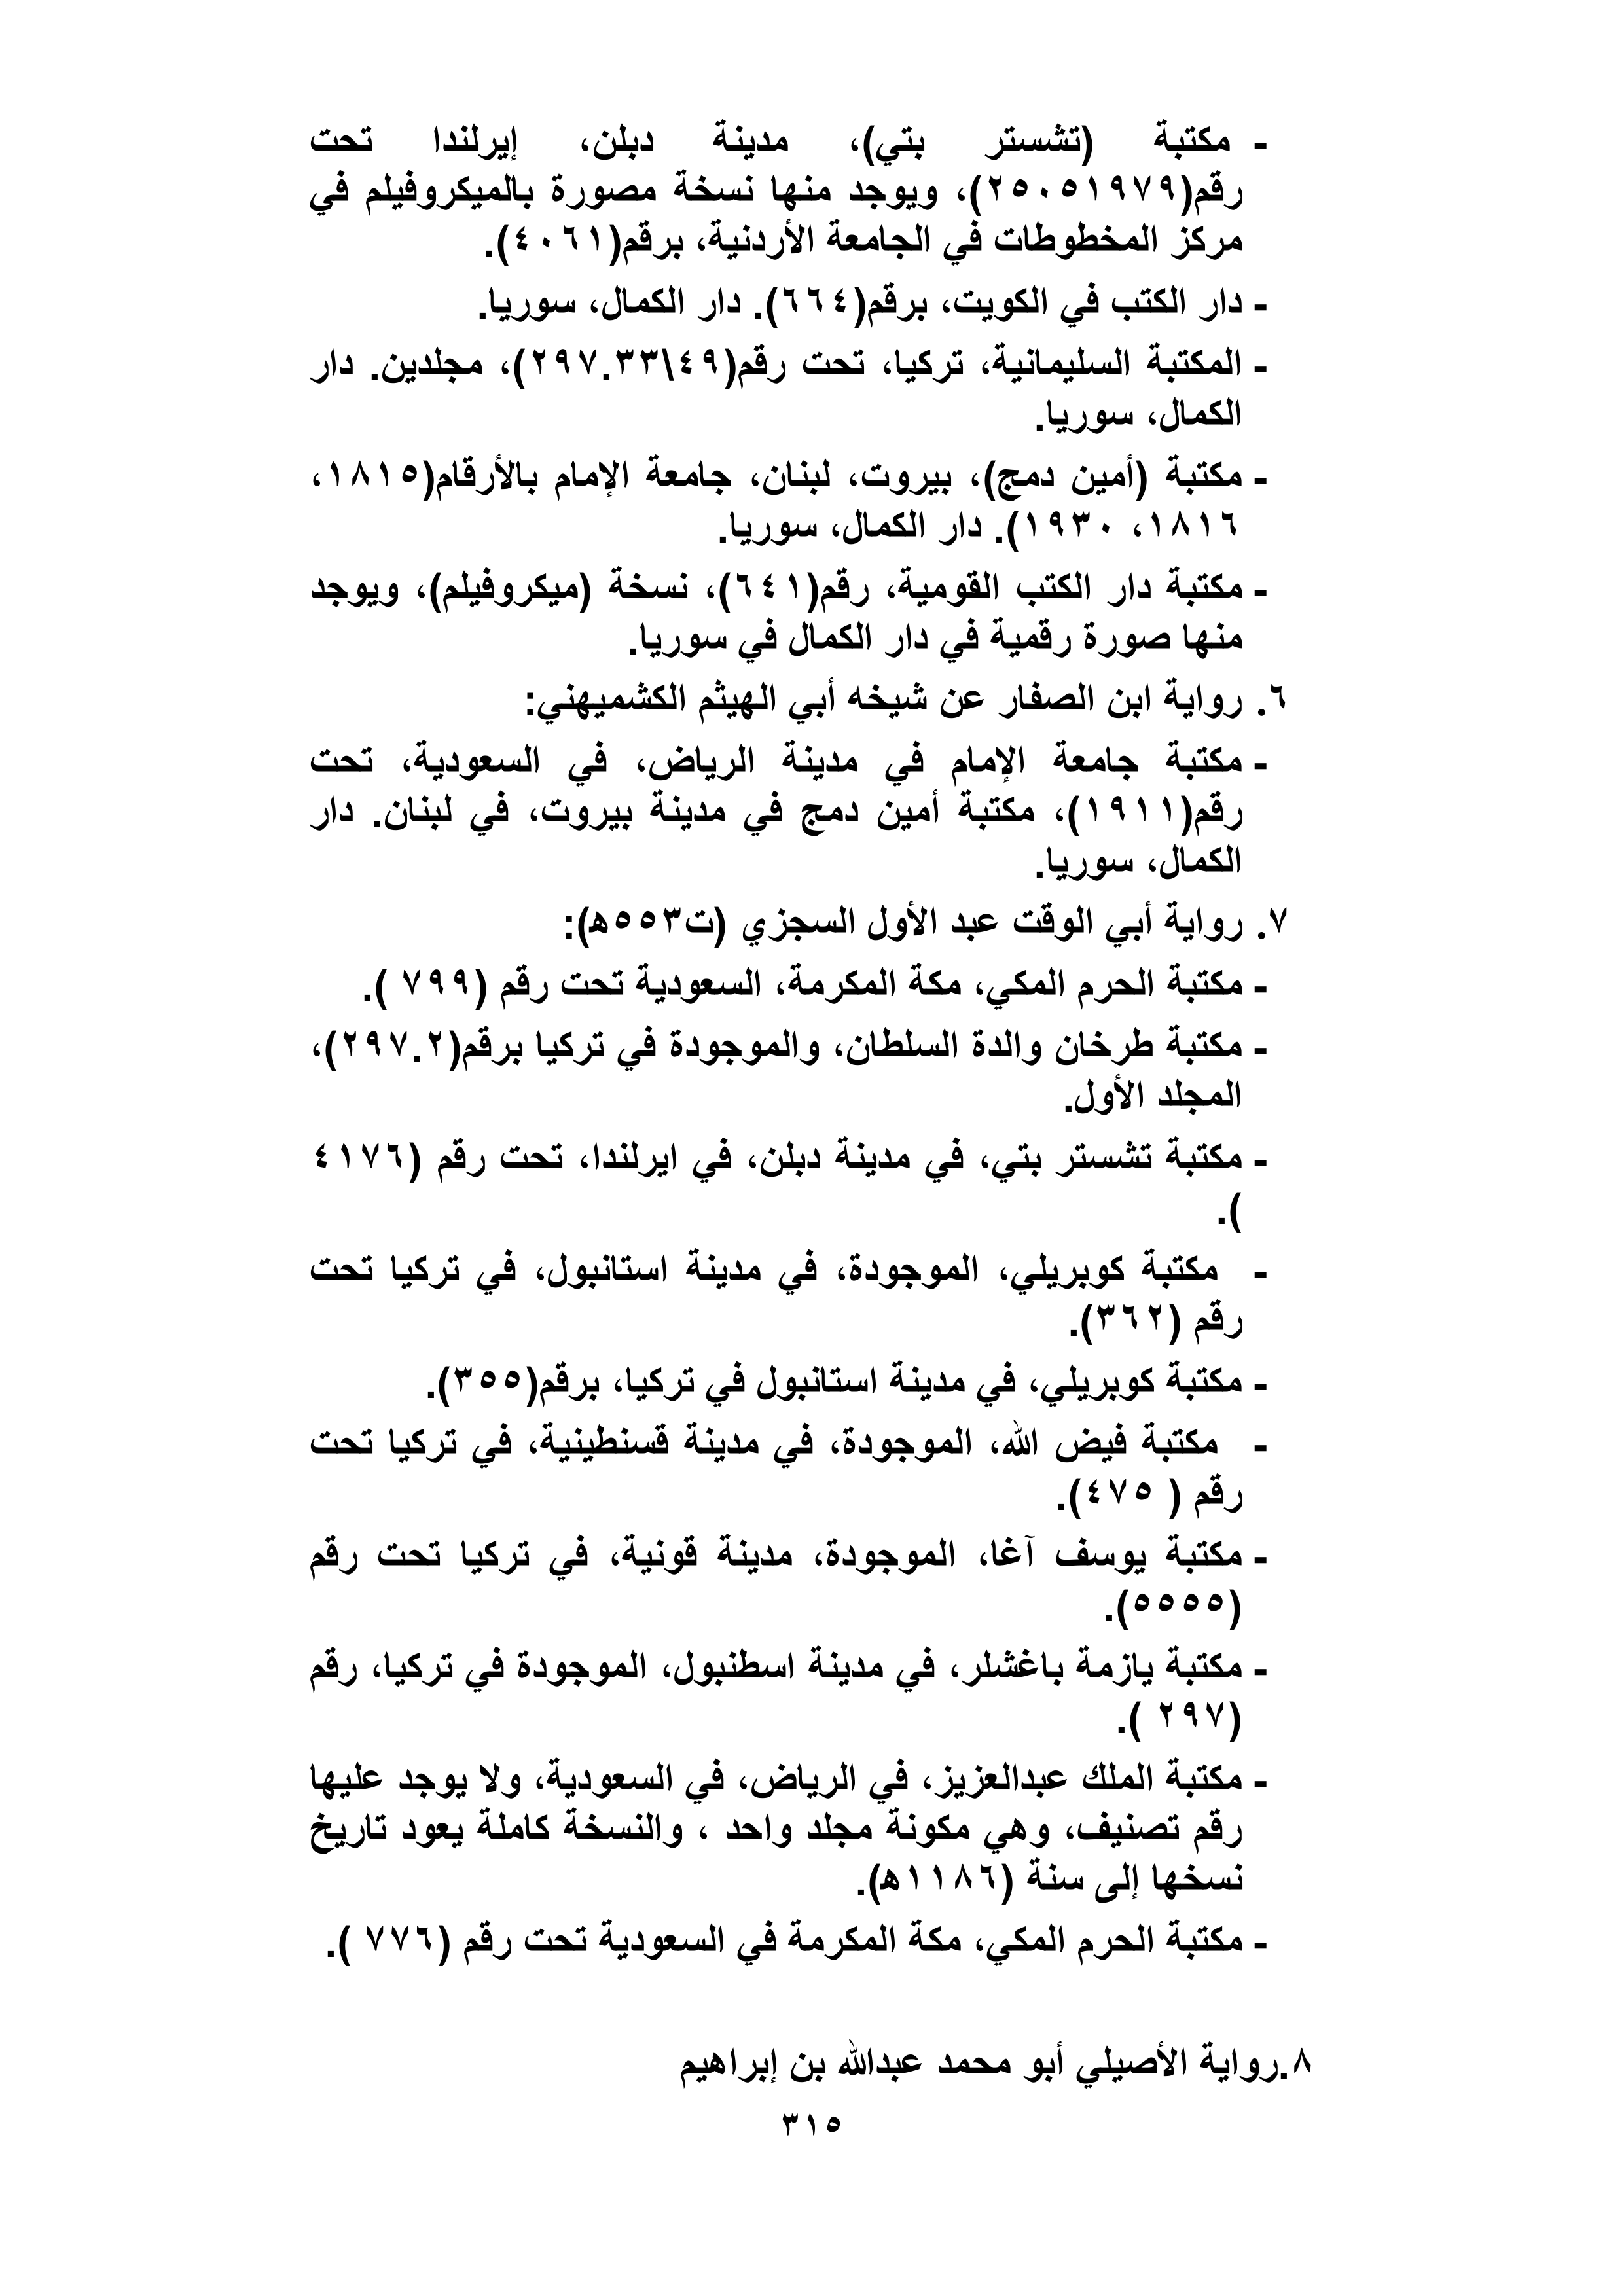 - مكتبة (تشستر بتي)، مدينة دبلن، إيرلندا تحت
رقم(٢٥٠٥١٩٧٩)، ويوجد منها نسخة مصورة بالميكروفيلم في
مركز المخطوطات في الجامعة الأردنية، برقم(٤٠٦١).
- دار الكتب في الكويت، برقم(٦٦٤). دار الكمال، سوريا.
- المكتبة السليمانية، تركيا، تحت رقم(٢٩٧.٣٣\٤٩)، مجلدين. دار
الكمال، سوريا.
- مكتبة (أمين دمج)، بيروت، لبنان، جامعة الإمام بالأرقام(١٨١٥،
١٨١٦، ١٩٣٠). دار الكمال، سوريا.
- مكتبة دار الكتب القومية، رقم(٦٤١)، نسخة (ميكروفيلم)، ويوجد
منها صورة رقمية في دار الكمال في سوريا.
٦. رواية ابن الصفار عن شيخه أبي الهيثم الكشميهني:
- مكتبة جامعة الإمام في مدينة الرياض، في السعودية، تحت
رقم(١٩١١)، مكتبة أمين دمج في مدينة بيروت، في لبنان. دار
الكمال، سوريا.
٧. رواية أبي الوقت عبد الأول السجزي (ت٥٥٣ه):
- مكتبة الحرم المكي، مكة المكرمة، السعودية تحت رقم (٧٩٩ ).
- مكتبة طرخان والدة السلطان، والموجودة في تركيا برقم(٢٩٧.٢)،
المجلد الأول.
- مكتبة تشستر بتي، في مدينة دبلن، في ايرلندا، تحت رقم (٤١٧٦
).
- مكتبة كوبريلي، الموجودة، في مدينة استانبول، في تركيا تحت
رقم (٣٦٢).
- مكتبة كوبريلي، في مدينة استانبول في تركيا، برقم(٣٥٥).
- مكتبة فيض الله، الموجودة، في مدينة قسنطينية، في تركيا تحت
رقم ( ٤٧٥).
- مكتبة يوسف آغا، الموجودة، مدينة قونية، في تركيا تحت رقم
(٥٥٥٥).
- مكتبة يازمة باغشلر، في مدينة اسطنبول، الموجودة في تركيا، رقم
(٢٩٧ ).
- مكتبة الملك عبدالعزيز، في الرياض، في السعودية، ولا يوجد عليها
رقم تصنيف، وهي مكونة مجلد واحد ، والنسخة كاملة يعود تاريخ
نسخها إلى سنة (١١٨٦ه).
- مكتبة الحرم المكي، مكة المكرمة في السعودية تحت رقم (٧٧٦ ).
٨.رواية الأصيلي أبو محمد عبدالله بن إبراهيم
٣١٥